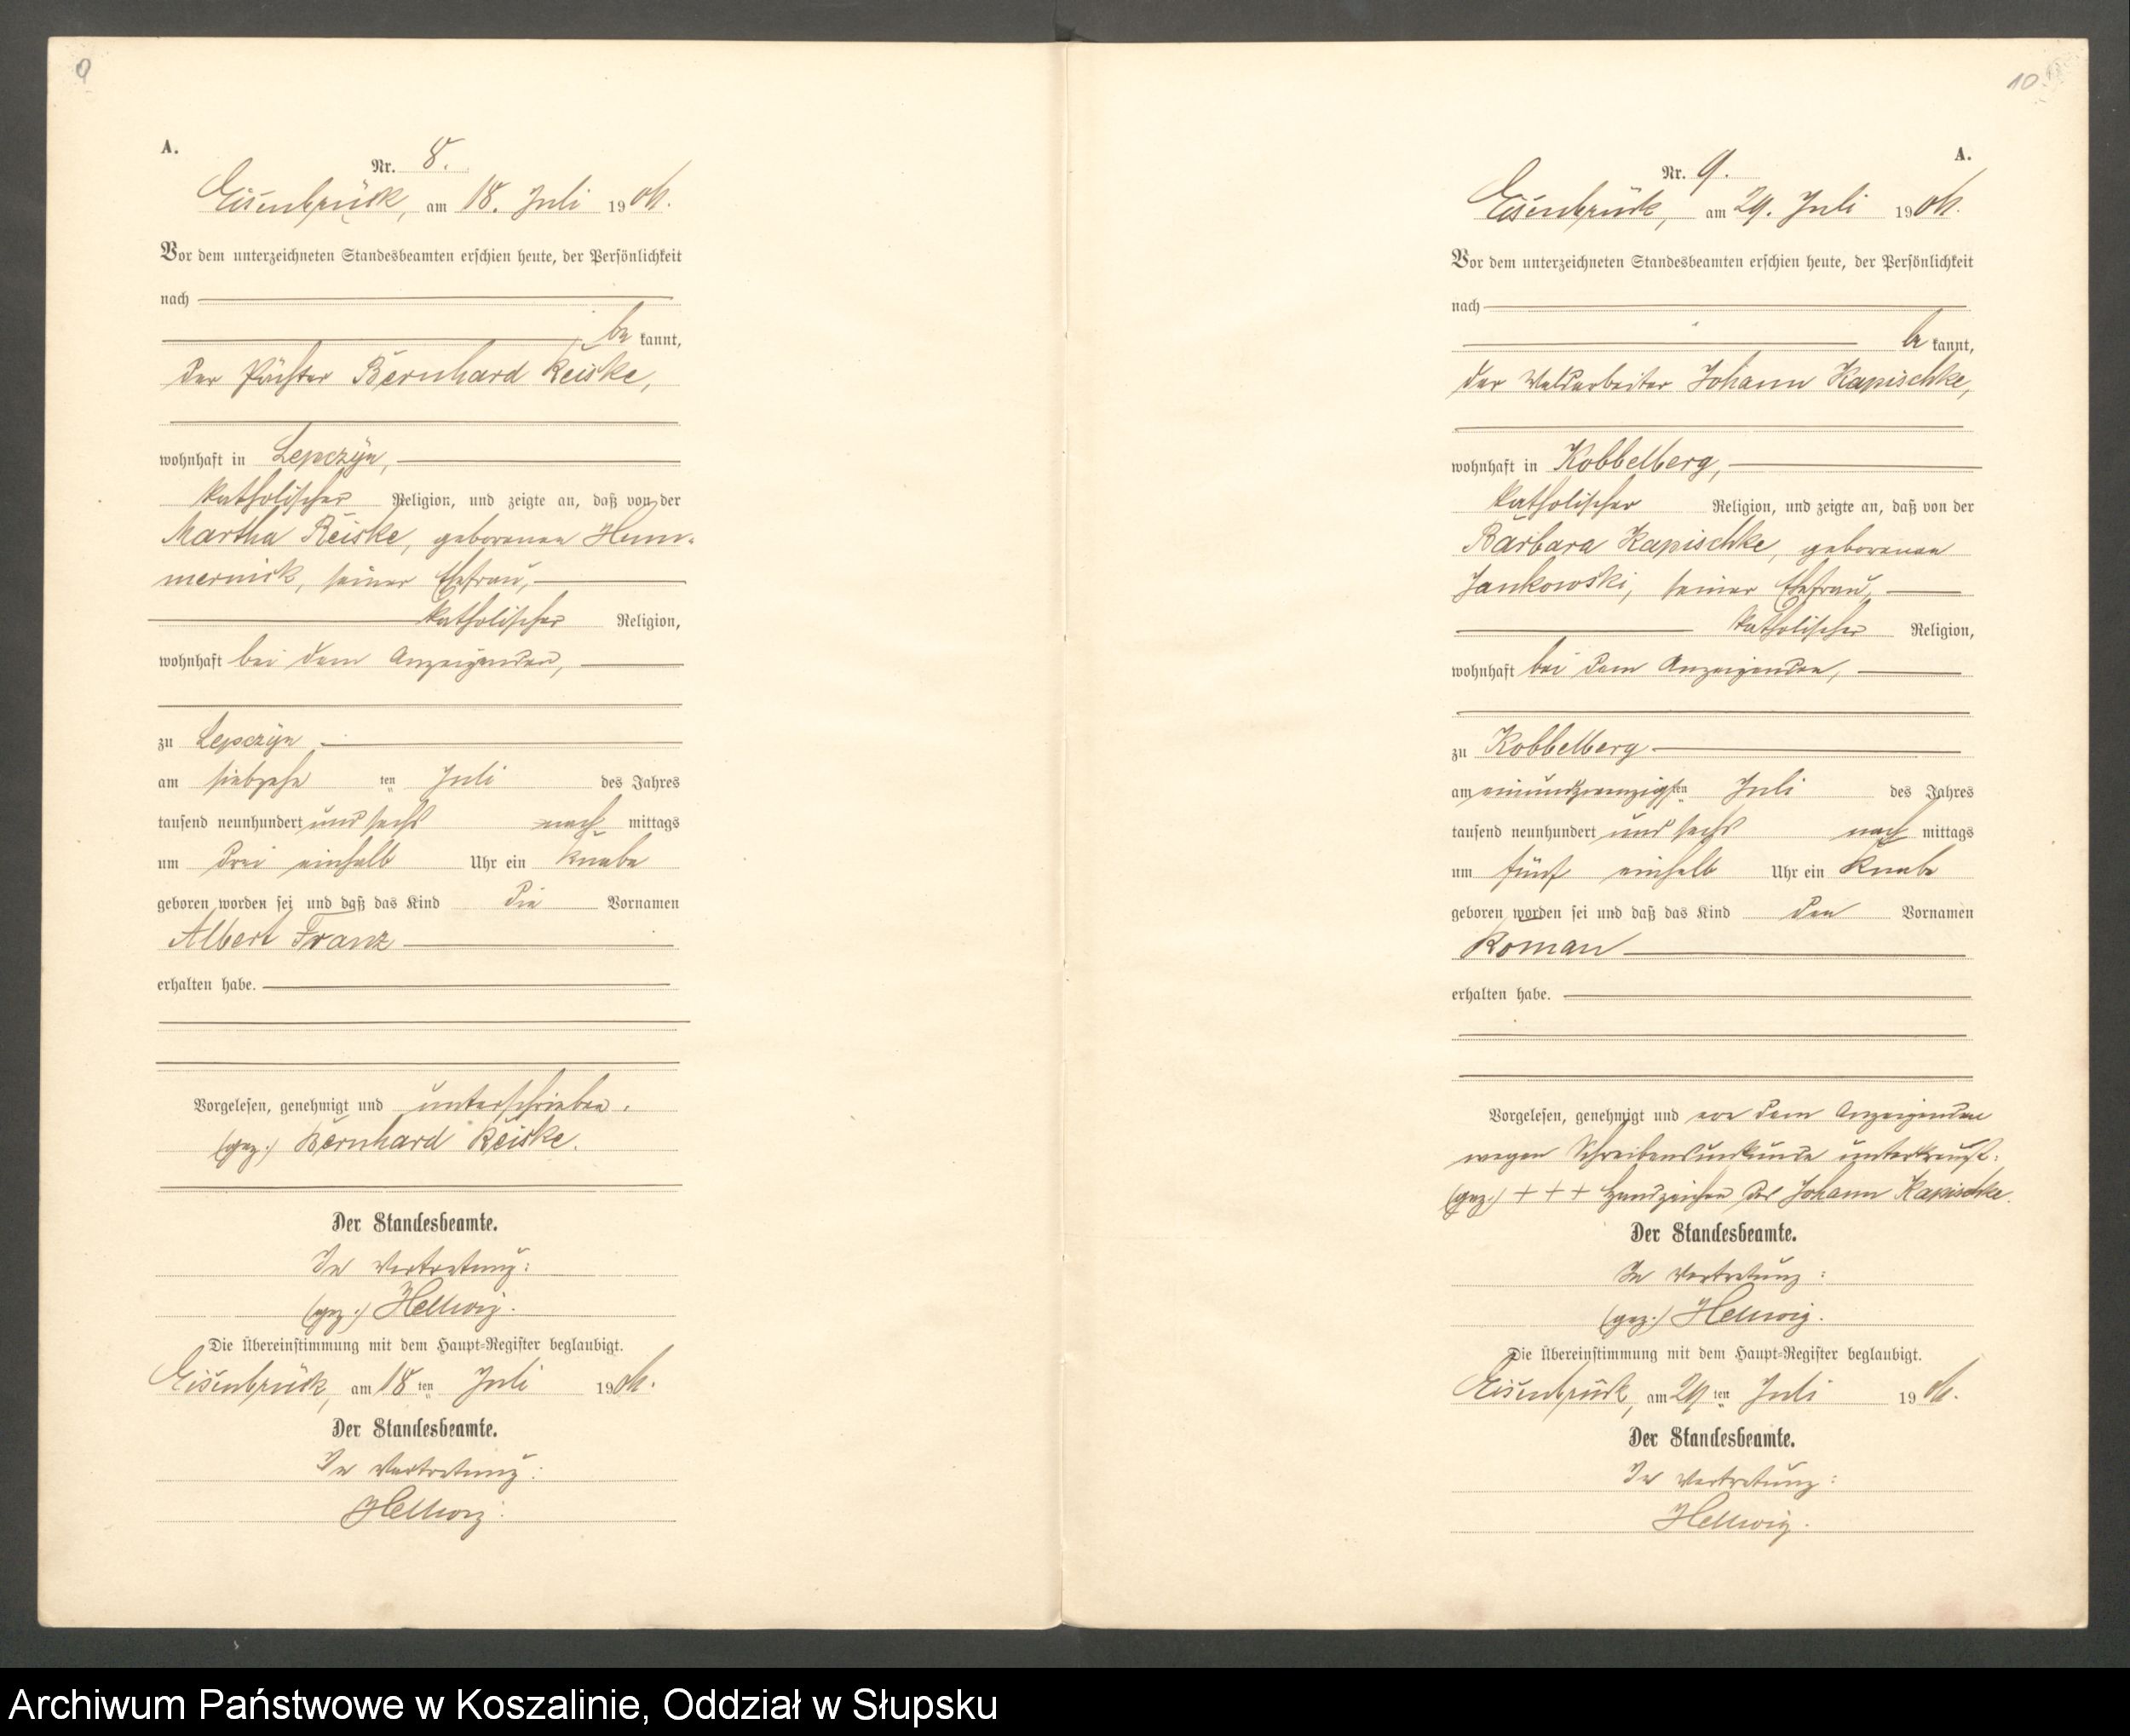 9
A.
Nr. 8.
Eisenbrück, am 18. Juli 1906.
Vor dem unterzeichneten Standesbeamten erschien heute, der Persönlichkeit
nach
be kannt,
der Pächter Bernhard Reiske,
wohnhaft in Lepczyn,
katholischer Religion, und zeigte an, daß von der
Martha Reiske, geborenen Hem-
mernick, seiner Ehefrau,
katholischer Religion,
wohnhaft bei dem Anzeigenden,
zu Lepczyn
am siebzehn ten Juli des Jahres
tausend neunhundert und sechs nach mittags
um drei einhalb Uhr ein Knabe
geboren worden sei und daß das Kind die Vornamen
Albert Franz
erhalten habe.
Vorgelesen, genehmigt und unterschrieben.
(gez.) Bernhard Reiske.
Der Standesbeamte.
In Vertretung:
(gez.) Hellwig.
Die Übereinstimmung mit dem Haupt-Register beglaubigt.
Eisenbrück, am 18 ten Juli 1906.
Der Standesbeamte.
In Vertretung:
Hellwig.
10
A.
Nr. 9.
Eisenbrück, am 29. Juli 1906.
Vor dem unterzeichneten Standesbeamten erschien heute, der Persönlichkeit
nach
be kannt,
der Waldarbeiter Johann Kapischke,
wohnhaft in Kobbelberg,
katholischer Religion, und zeigte an, daß von der
Barbara Kapischke, geborenen
Jankowski, seiner Ehefrau,
katholischer Religion,
wohnhaft bei dem Anzeigenden,
zu Kobbelberg
am einundzwanzigsten Juli des Jahres
tausend neunhundert und sechs nach mittags
um fünf einhalb Uhr ein Knabe
geboren worden sei und daß das Kind den Vornamen
Roman
erhalten habe.
Vorgelesen, genehmigt und von dem Anzeigenden
wegen Schreibensunkunde unterkreuzt.
(gez.) + + + Handzeichen des Johann Kapischke.
Der Standesbeamte.
In Vertretung:
(gez.) Hellwig.
Die Übereinstimmung mit dem Haupt-Register beglaubigt.
Eisenbrück, am 29 ten Juli 1906.
Der Standesbeamte.
In Vertretung:
Hellwig.
Archiwum Państwowe w Koszalinie, Oddział w Słupsku